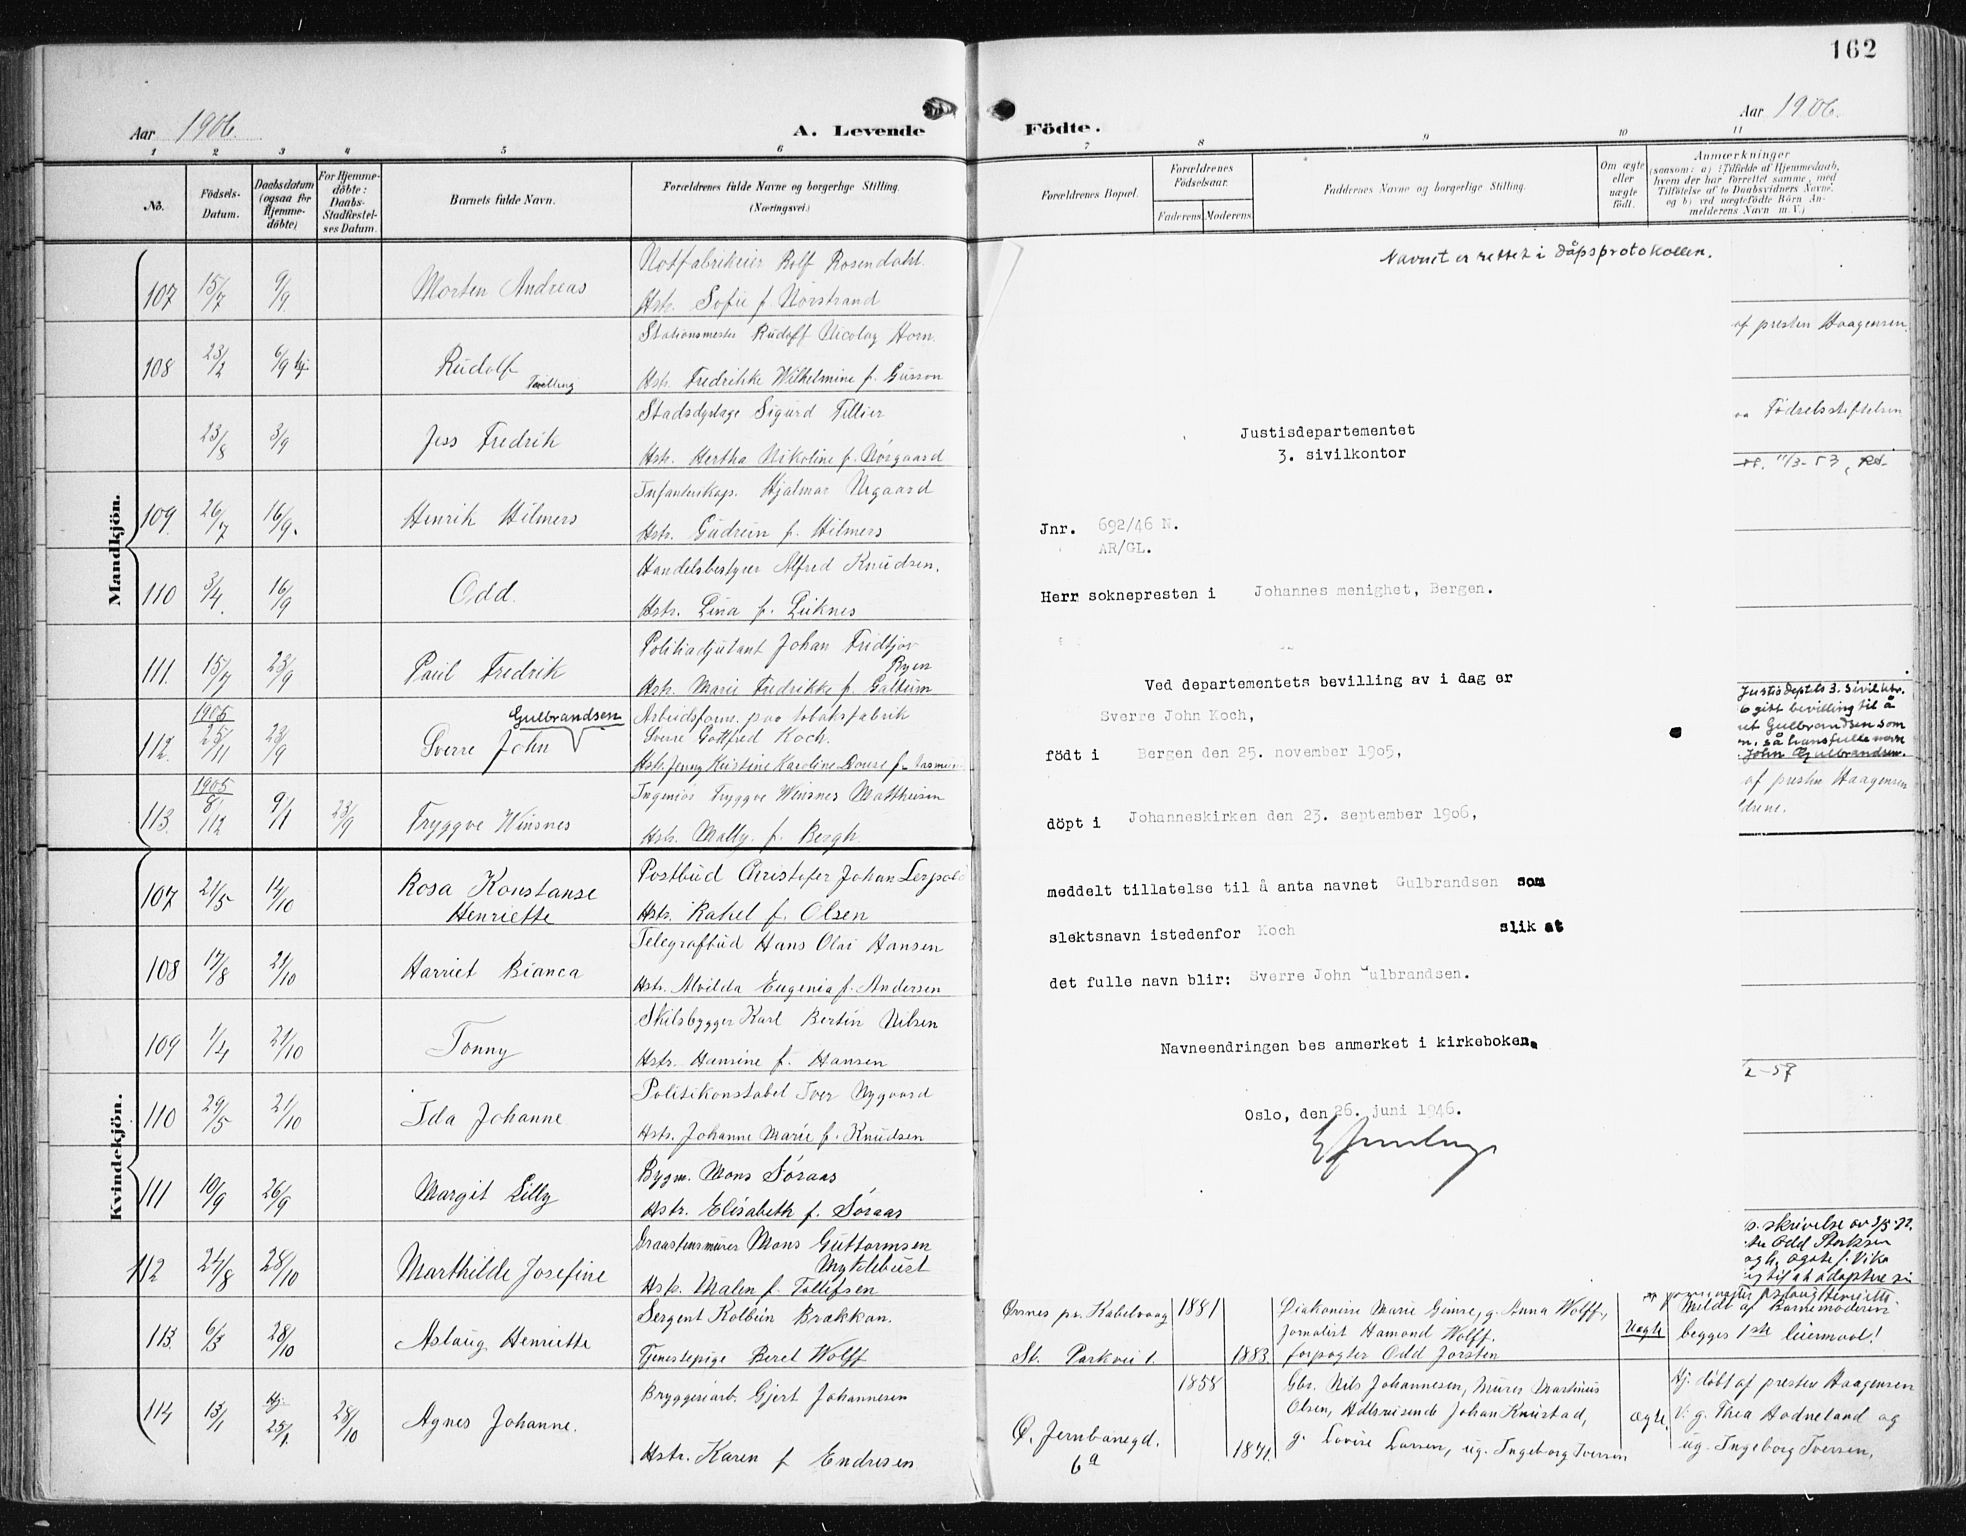 162
Aar 1906.
A. Levende
Födte.
Aar 1906.
1 2 3 4 5 6 7 8 9 10 11
No.
Födsels-
Datum.
Daabsdatum
(ogsaa for
Hjemme-
døbte)
For Hjemme-
døbte:
Daabs-
Stadfæstel-
ses Datum.
Barnets fulde Navn.
Forældrenes fulde Navne og borgerlige Stilling.
(Næringsvei.)
Forældrenes Bopæl.
Forældrenes
Födselsaar.
Faderens Moderens
Faddernes Navne og borgerlige Stilling.
Om ægte
eller
uægte
født.
Anmærkninger
(saasom: a) i Tilfælde af Hjemmedaab,
hvem der har forrettet samme, med
Tilføielse af to Daabsvidners Navne.
og b) ved uægtefödte Börn An-
melderens Navn m. V.)
Mandkjön.
107 15/7 9/9 Morten Andreas
Notfabrikeier Rolf Rosendahl.
Hstr. Sofie f. Norstrand
108 23/2 6/9 hj. Rudolf Tvilling
Stationsmester Rudolf Nicolay Horn.
Hstr. Fredrikke Wilhelmine f. Gusson
23/8 3/9 Jess Fredrik
Stadsdyrlæge Sigurd Tillier
Hstr. Hertha Nikoline f. Nørgaard
109. 26/7 16/9. Henrik Hilmers
Infanterikap. Hjalmar Negaard
Hstr. Gudrun f. Hilmers
110 3/4. 16/9 Odd.
Handelsbestyrer Alfred Knudsen.
Hstr. Lina f. Luknes
111. 15/7 23/9 Paul Fredrik
Politiadjutant Johan Fridtjov
Ryen
Hstr. Marie Fredrikke f. Galtum
112. 1905 25/11 23/9 Sverre John Gulbrandsen
Arbeidsform. paa tobaksfabrik
Sverre Gottfred Koch.
Hstr. Jenny Kristine Karoline Louise f.
113. 1905 8/12 9/1 23/9 Tryggve Winsnes
Ingeniør Tryggve Winsnes Matthisen
Hstr. Mally. f. Bergh.
Kvindekjön.
107 21/5 14/10 Rosa Konstanse
Henriette
Postbud Christofer Johan Lerpold
Hstr. Rakel f. Olsen
108 17/8 21/10 Harriet Bianca
Telegrafbud Hans Olai Hansen
Hstr. Alvilda Eugenia f. Andersen
109 1/4 21/10 Tonny
Skibsbygger Karl Bertin Nilsen
Hstr. Hansine f. Hansen
110 29/5 21/10 Ida Johanne
Politikonstabel Iver Nygaard
Hstr. Johanne Marie f. Knudsen
111 10/9 26/9 Margit Lilly
Bygm. Mons Søraas
Hstr. Elisabeth f. Søraas
112 24/8 28/10 Marthilde Josefine
Graastensmurer Mons Guttormsen
Myklebust
Hstr. Malen f. Tollefsen
113. 6/3 28/10 Aslaug Henriette
Sergent Kolbein Brakkan.
Tjenestepige Beret Wolff
114 13/1 Hj. 25/1. 28/10 Agnes Johanne.
Bryggesiarb. Gjert Johannesen
Hstr. Karen f Endresen
Navnet er rettet i Dåpsprotokollen.
Justisdepartementet
3. sivilkontor
Jnr. 692/46 N.
AR/GL.
Herr soknepresten i Johannes menighet, Bergen.
Ved departementets bevilling av i dag er
Sverre John Koch,
født i Bergen den 25. november 1905,
döpt i Johanneskirken den 23. september 1906,
meddelt tillatelse til å anta navnet Gulbrandsen som
slektsnavn istedenfor Koch slik at
det fulle navn blir: Sverre John Gulbrandsen.
Navneendringen bes anmerket i kirkeboken.
Oslo, den 26. juni 1946.
af presten Haagensen.
Fødselsstiftelsen
11/3-53,
Justisdepts 3. sivilktr.
6 gitt bevilling til å
et Gulbrandsen som
n, så hans fulle navn
John Gulbrandsen.
af presten Haagensen
ldrene.
2-57
s. skrivelse av 3/5 22.
Odd Storksen
og h. Agate f. Vika
til at adoptere
Ørsnes pr. Kabelvaag 1881
St. Parkvei 1. 1883.
Diakonisse Marie Gimre, g. Anna Wolff,
Jornalist Hamond Wolff.
forpagter Odd Jorsten
Uægte
Meldt af Barnemoderen
begges 1ste leiermaal!
Ø. Jernbanegd.
6a
1858
1871.
Gbr. Nils Johannesen, Murer Martinus
Olsen, Hdlsreisende Johan Knustad,
g. Lovise Larsen, ug. Ingeborg Iversen
ægte.
Hj. døbt af presten Haagensen
V. g. Thea Hodneland og
ug. Ingeborg Iversen.